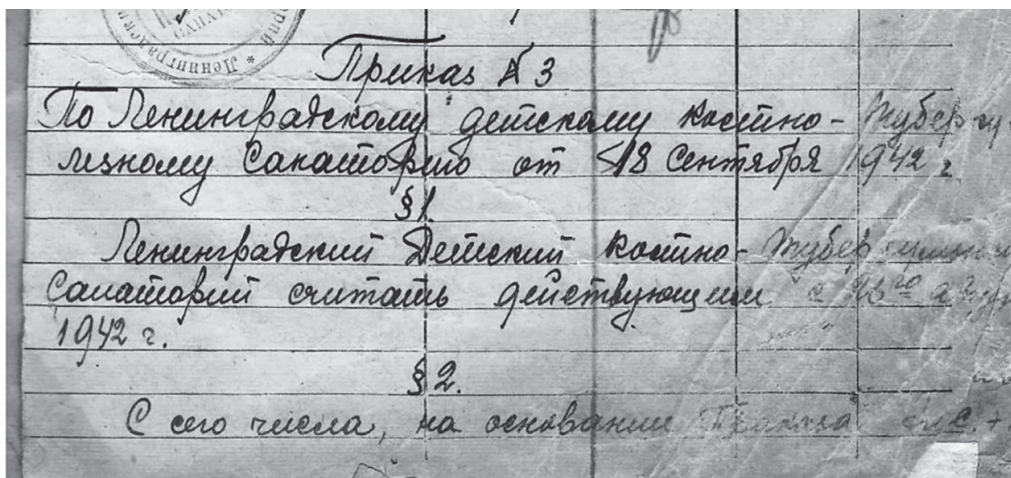 * Ленинградски
Приказ № 3
По Ленинградскому детскому костно-тубер
лезному Санаторию от 18 Сентября 1942 г.
§ 1.
Ленинградский Детский костно-тубер
Санаторий считать действующим с
1942 г.
§ 2.
С сего числа, на основании Приказа